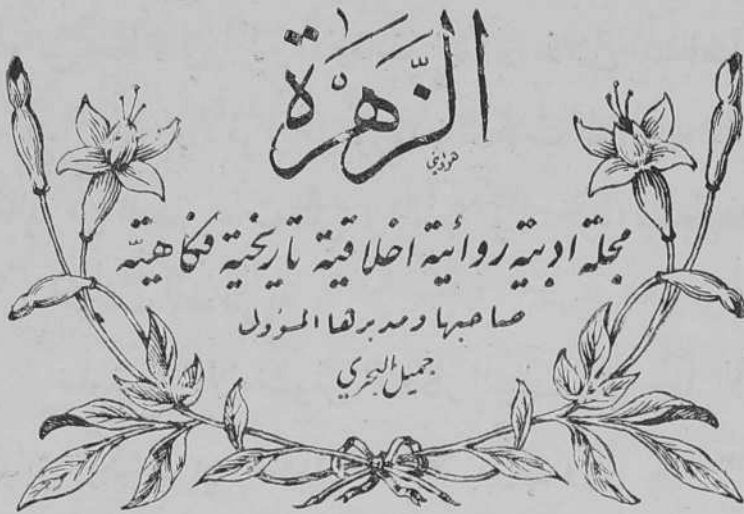 الزَّهرَة
هواويني
مجلة ادبية روائية اخلاقية تاريخية فكاهية
صاحبها ومديرها المسؤول
جميل البحري